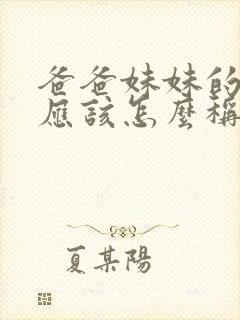 爸爸妹妹的
應該怎麼稱
夏某陽